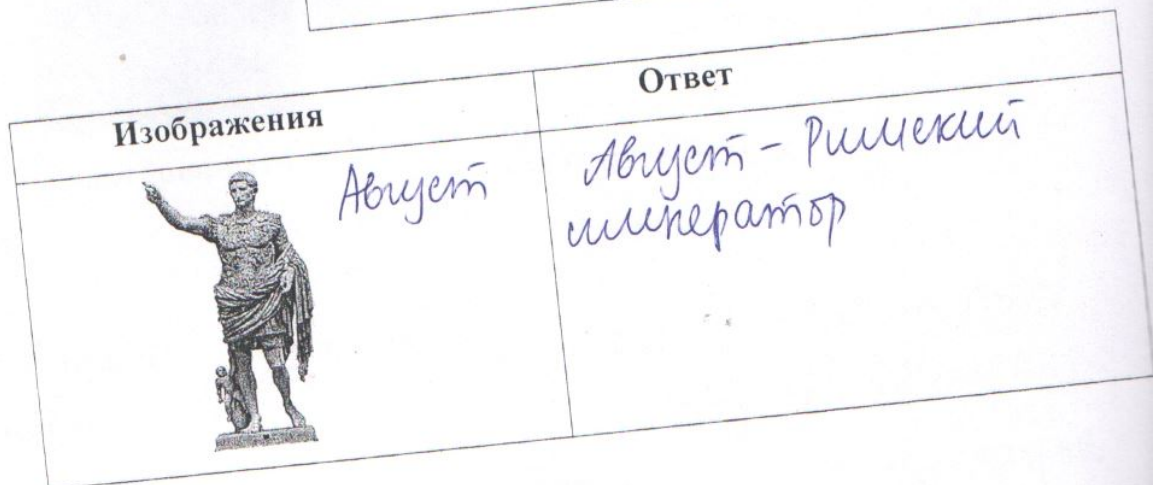 Изображения
Ответ
Август
Август - Римский
император